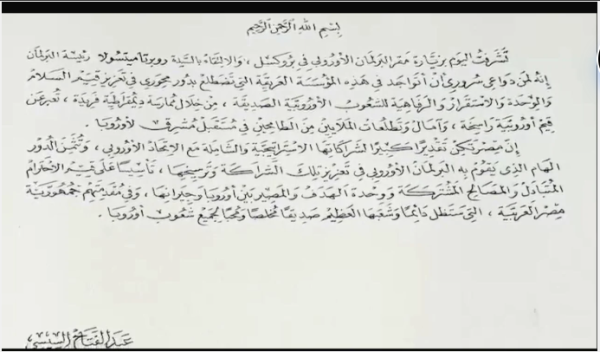 بسم الله الرحمن الرحيم
تشرفت اليوم بزيارة مقر البرلمان الأوروبي في بروكسل، والالتقاء بالسيدة روبرتا ميتسولا رئيسة البرلمان
إنه لمن دواعي سروري أن أتواجد في هذه المؤسسة العريقة التي تضطلع بدور محوري في تعزيز قيم السلام
والوحدة والاستقرار والرفاهية للشعوب الأوروبية الصديقة، من خلال ممارسة ديمقراطية فريدة، تعبر عن
قيم أوروبية راسخة، وآمال وتطلعات الملايين من الطامحين في مستقبل مشرق لأوروبا.
إن مصر تكن تقديرًا كبيرًا لشراكاتها الاستراتيجية والشاملة مع الاتحاد الأوروبي، وتثمن الدور
الهام الذي يقوم به البرلمان الأوروبي في تعزيز تلك الشراكة وترسيخها، تأسيسًا على قيم الاحترام
المتبادل والمصالح المشتركة ووحدة الهدف والمصير بين أوروبا وجيرانها، وفي مقدمتهم جمهورية
مصر العربية، التي ستظل دائمًا وشعبها العظيم صديقًا مخلصًا ومحبًا لجميع شعوب أوروبا.
عبد الفتاح السيسي